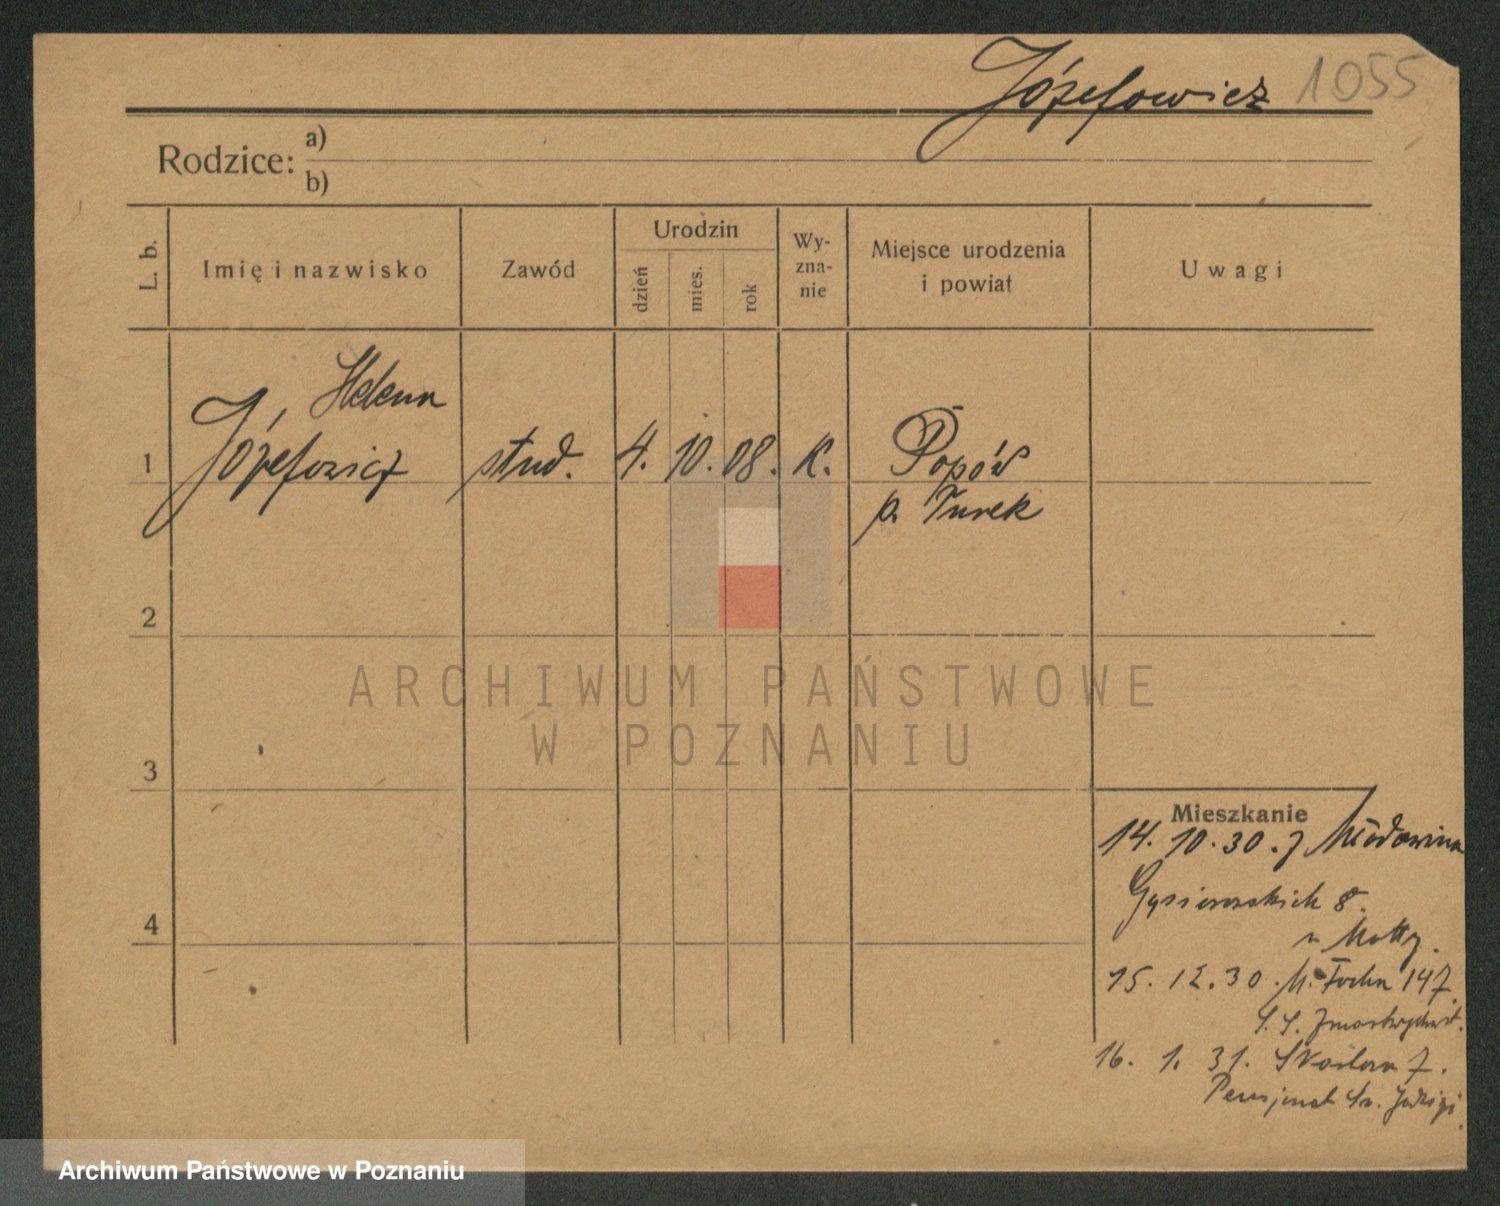 Józefowicz 1055
Rodzice: a)
b)
L. b.
Imię i nazwisko
Zawód
Urodzin
dzień
mies.
rok
Wy-
zna-
nie
Miejsce urodzenia
i powiat
Uwagi
Helena
1 Józefowicz stud. 4. 10. 08. K. Popów
p. Turek
2
ARCHIWUM PAŃSTWOWE
W POZNANIU
3
Mieszkanie
14. 10. 30. z
Gąsiorowskich 8.
4
u Motty.
15. 12. 30. M. Focha 147.
S. S. Zmartwychwst.
16. 1. 31. 7.
Pensjonat Św. Jadwigi.
Archiwum Państwowe w Poznaniu